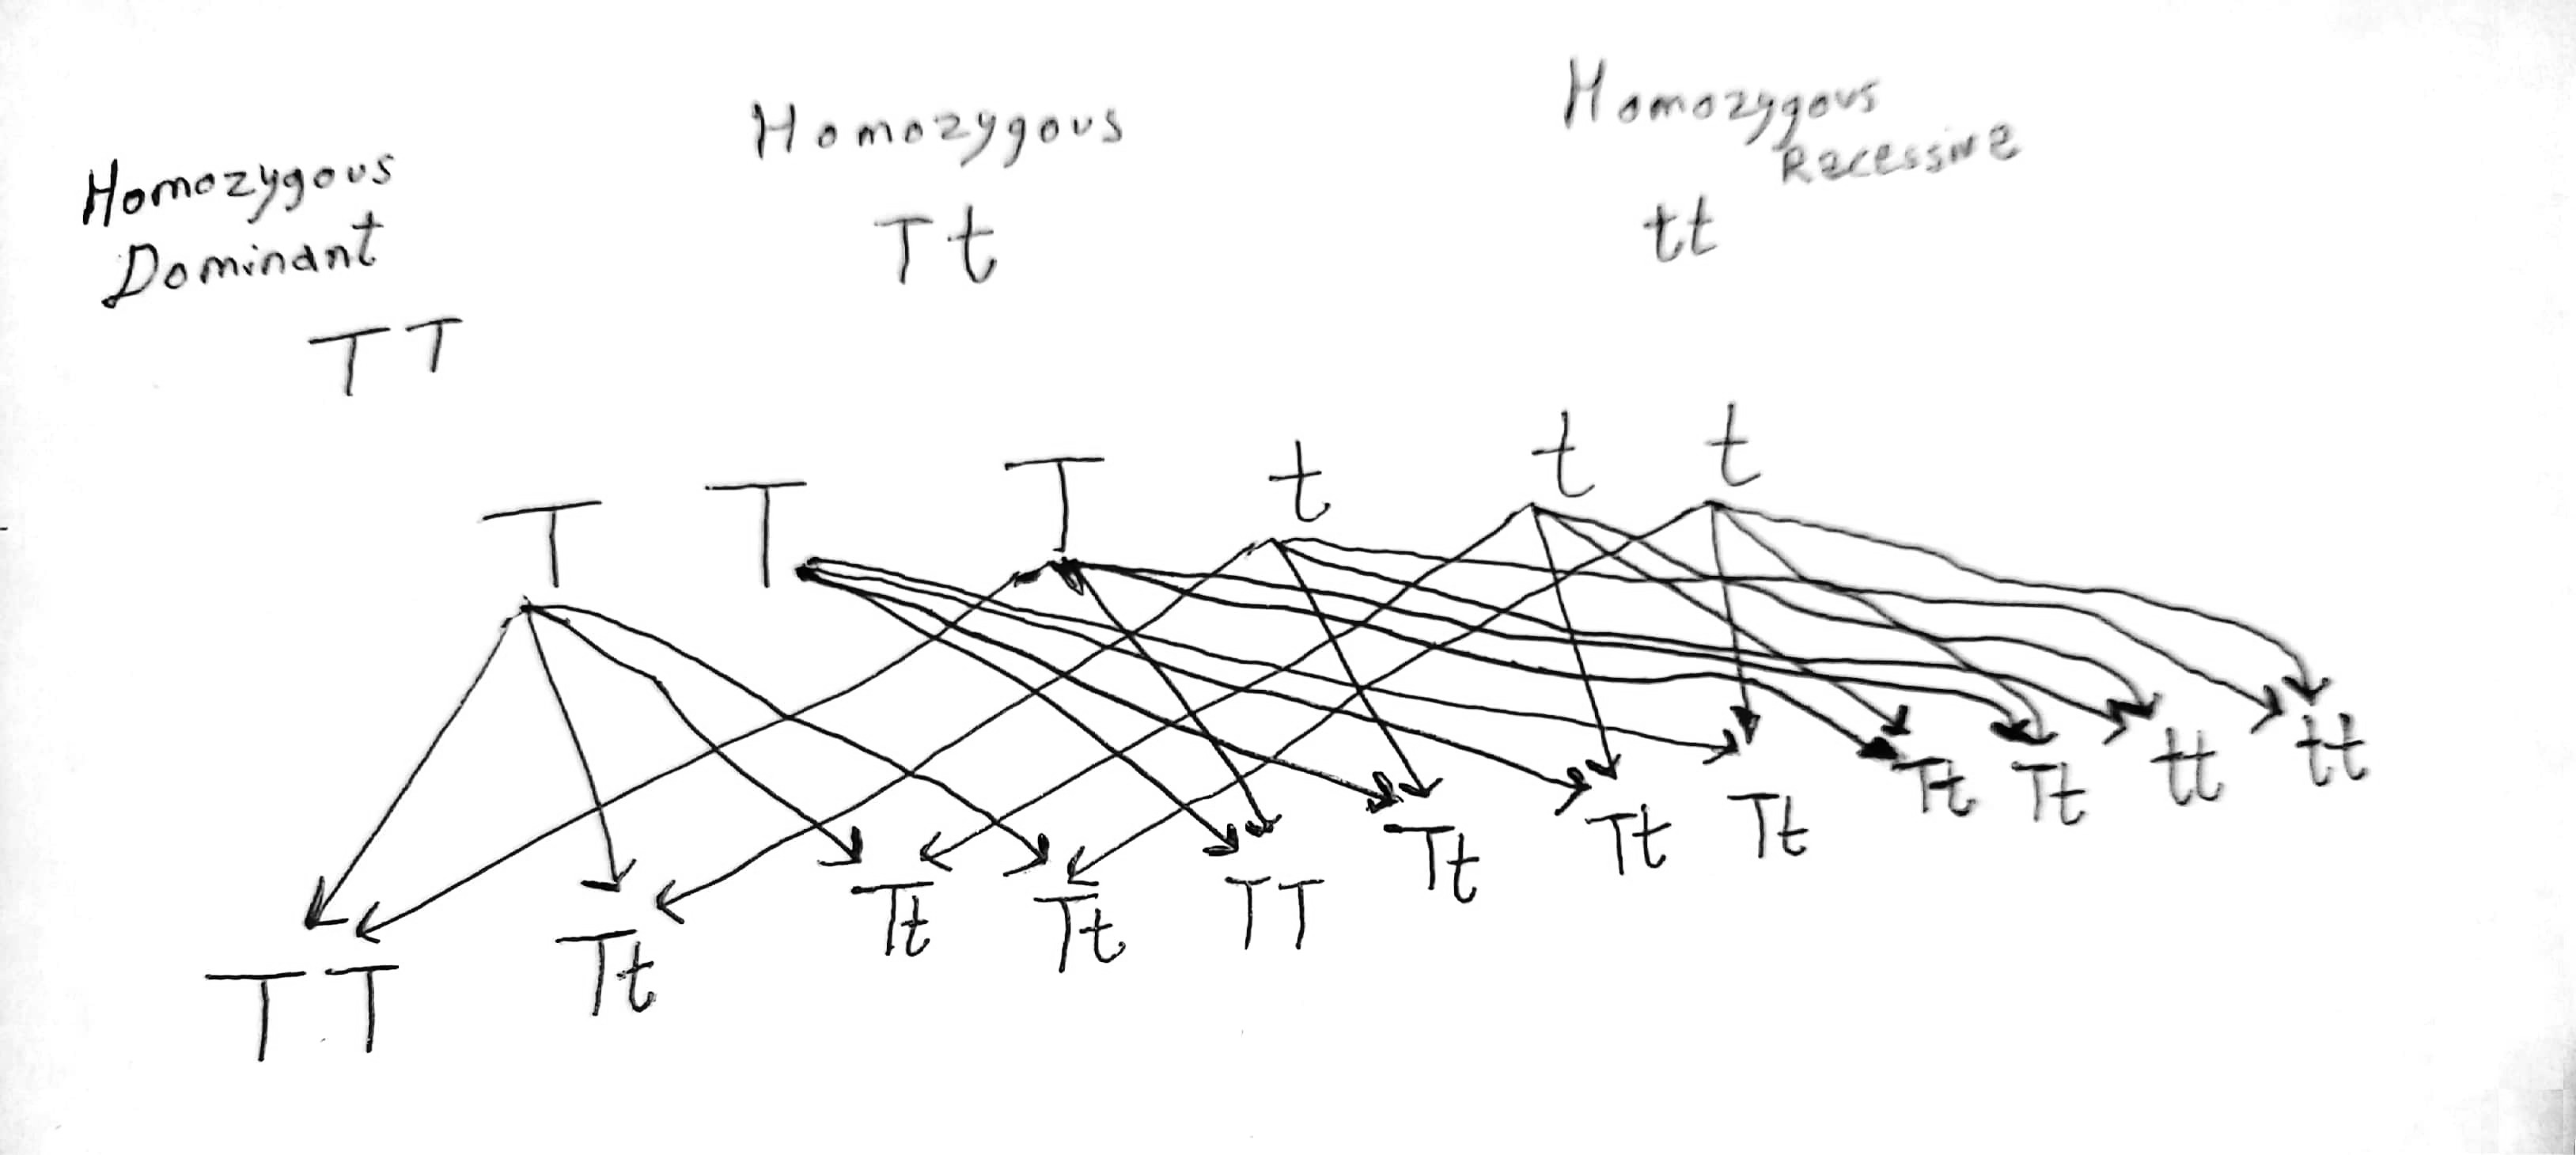 Homozygous
Dominant
TT
Homozygous
Tt
Homozygous
Recessive
tt
T T T t t t
TT Tt Tt Tt TT Tt Tt Tt Tt Tt tt tt